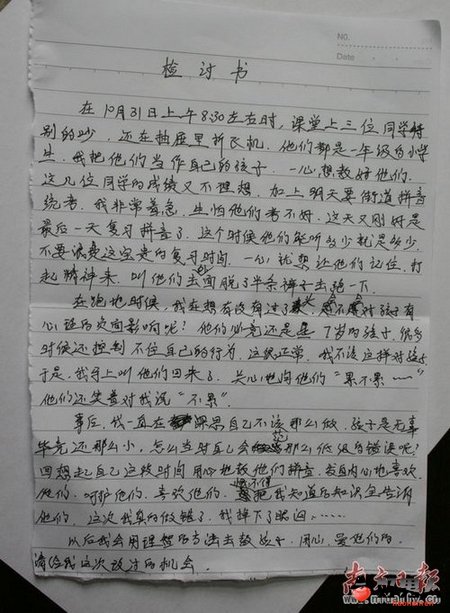 NO.
Date
检讨书
在10月31日上午8:30左右时，课堂上三位同学特
别的吵，还在抽屉里折飞机。他们都是一年级的小学
生，我把他们当作自己的孩子，一心想教好他们。
这几位同学的成绩又不理想，加上明天要街道拼音
统考，我非常着急，生怕他们考不好。这天又刚好是
最后一天复习拼音了，这个时候他们能听多少就是多少
不要浪费这宝贵的复习时间，一心就想让他们记住，打
起精神来，叫他们出面脱了半条裤子去跑一下。
在跑地时候，我在想有没有过了头，对孩子有
心理的负面影响呢？他们必竟还是 7岁的孩子，很多
时候还控制不住自己的行为，这很正常。我不该这样对孩子
于是，我马上叫他们回来了，关心地问他们“累不累……”
他们还笑着对我说“不累”。
事后，我一直在 自己不该那么做，孩子是无辜
毕竟还那么小，怎么当时自己会犯那么低级的错误呢？
回想起自己这段时间用心地教他们拼音，发自内心地喜欢
他们，呵护他们，喜欢他们， 把我知道的知识全告诉
他们，这次我真的做错了，我掉下了眼泪……
从后我会用理想的方法去教孩子，用心，爱他们的，
请给我这次改过的机会。
南方日报